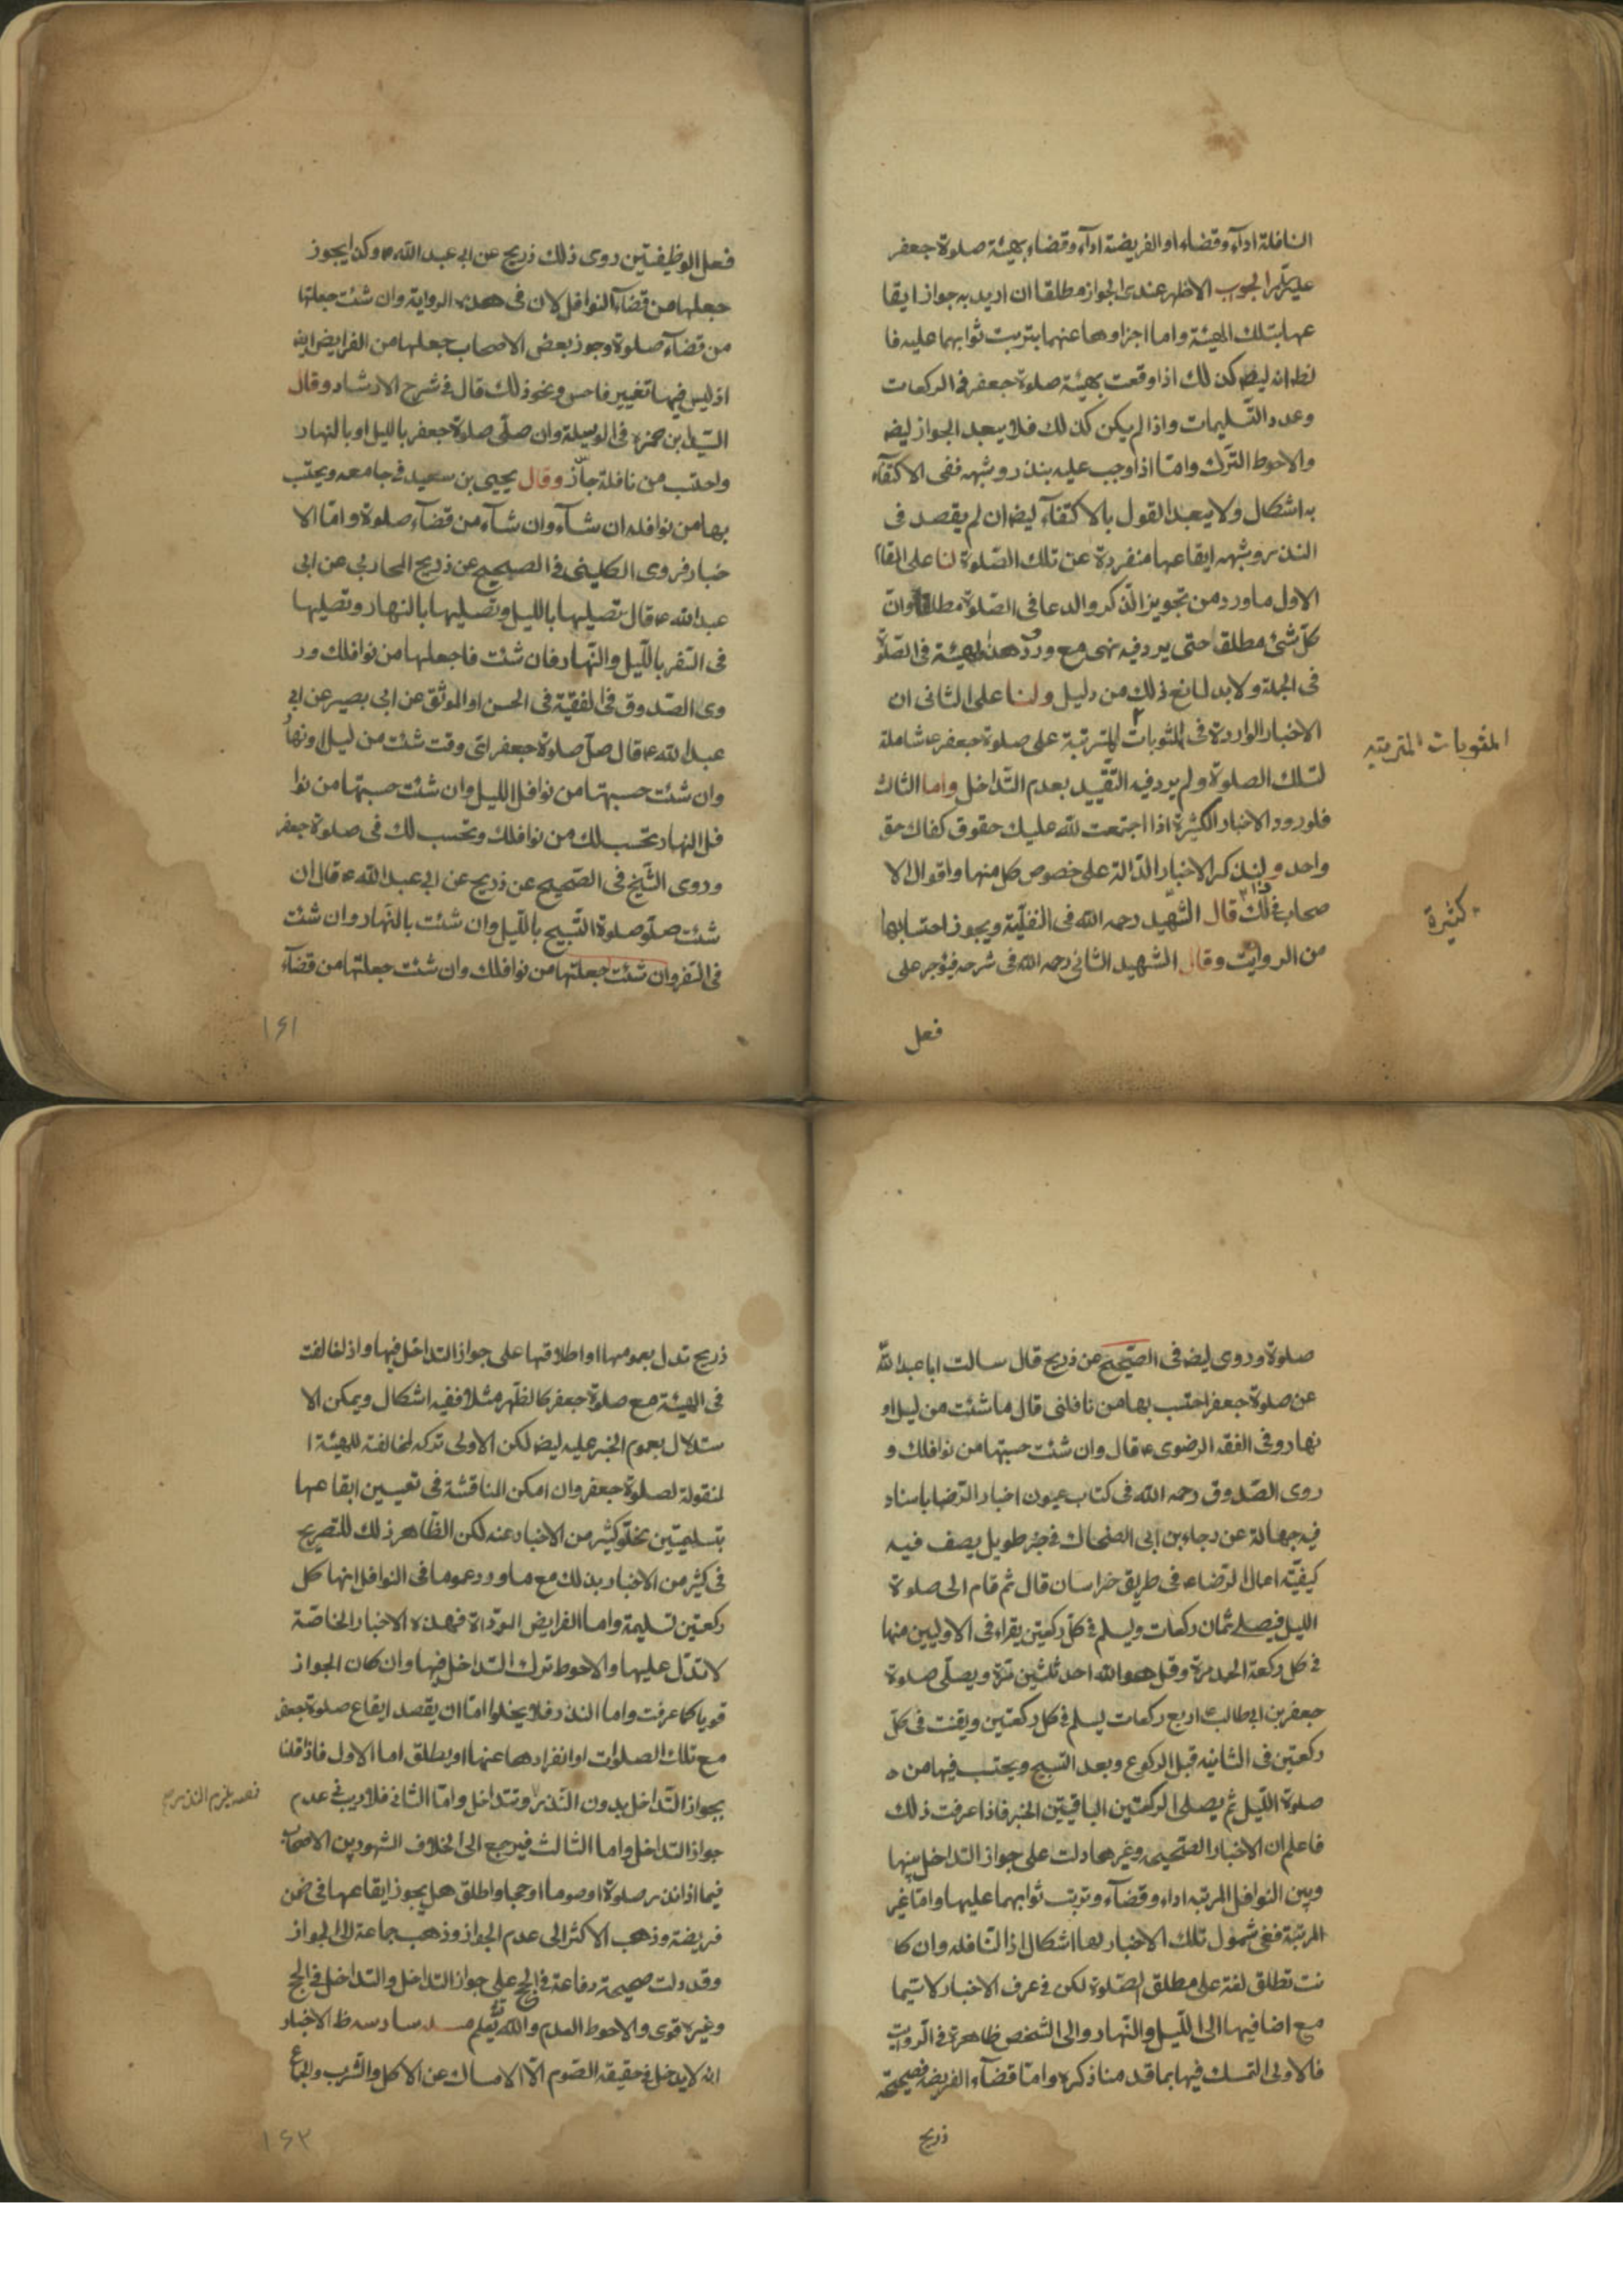 النافلة اداء وقضاء او الفريضة اداء وقضاء بهيئة صلوة جعفر
الجواب الاظهر عندى الجواز مطلقا ان اريد به جواز ايقا
عها بتلك الهيئة واما اجزاوها عنهما بترتب ثوابهما عليه فا
كذلك اذا وقعت بهيئة صلوة جعفر فى الركعات
وعدد التسليمات واذا لم يكن كذلك فلا يبعد الجواز ايضا
والاحوط الترك واما اذا وجب عليه بنذر وشبهه ففى الاكتفآء
به اشكال ولا يبعد القول بالاكتفآء ايضا ان لم يقصد فى
النذر وشبهه ايقاعها منفردة عن تلك الصلوة لنا على المقام
الاول ماورد من تجويز الذكر والدعا فى الصلوة مطلقا وان
كل شئ مطلق حتى يرد فيه نهى مع ورود هذه الهيئة فى الصلوة
فى الجملة ولا بد لمانع ذلك من دليل ولنا على الثانى ان
الاخبار الواردة فى المثوبات المترتبة على صلوة جعفر ع شاملة
المثوبات المترتبه
لتلك الصلوة ولم يرد فيه التقييد بعدم التداخل واما الثالث
فلورود الاخبار الكثيرة اذا اجتمعت لله عليك حقوق كفاك حق
واحد ولنذكر الاخبار الدالة على خصوص كل منها واقوال الا
صحاب فى ذلك قال الشهيد رحمه الله فى النفلية ويجوز احتسابها
كثيرة
من الرواتب وقال الشهيد الثانى رحمه الله فى شرحه فيؤجر على
فعل
فعل الوظيفتين روى ذلك ذريح عن ابى عبد الله ع وكذا يجوز
جعلها من قضآء النوافل لان فى هذه الرواية وان شئت جعلتها
من قضآء صلوة وجوز بعض الاصحاب جعلها من الفرايض ايضا
اذ ليس فيها تغيير فاحش ونحو ذلك قال فى شرح الارشاد وقال
السيد ابن حمزه فى الوسيلة وان صلى صلوة جعفر بالليل او بالنهار
واحتسب من نافلة جاز وقال يحيى بن سعيد فى جامعه ويحتسب
بها من نوافله ان شآء وان شآء من قضآء صلوة واما الا
خبار فروى الكلينى فى الصحيح عن ذريح المحاربى عن ابى
عبد الله ع قال تصليها بالليل وتصليها بالنهار وتصليها
فى السفر بالليل والنهار فان شئت فاجعلها من نوافلك ور
وى الصدوق فى الفقيه فى الحسن او الموثق عن ابى بصير عن ابى
عبد الله ع قال صل صلوة جعفر اى وقت شئت من ليل او نهار
وان شئت حسبتها من نوافل الليل وان شئت حسبتها من نوا
فل النهار تحسب لك من نوافلك وتحسب لك فى صلوة جعفر
وروى الشيخ فى الصحيح عن ذريح عن ابى عبد الله ع قال ان
شئت صل صلوة التسبيح بالليل وان شئت بالنهار وان شئت
فى السفر وان شئت جعلتها من نوافلك وان شئت جعلتها من قضآء
١٦١
صلوة وروى ايضا فى الصحيح عن ذريح قال سالت ابا عبد الله
عن صلوة جعفر احتسب بها من نافلتى قال ما شئت من ليل او
نهار وفى الفقه الرضوى ع قال وان شئت حسبتها من نوافلك و
روى الصدوق رحمه الله فى كتاب عيون اخبار الرضا باسناد
فيه جهالة عن رجاء بن ابى الضحاك فى خبر طويل يصف فيه
كيفية اعمال الرضا ع فى طريق خراسان قال ثم قام الى صلوة
الليل فيصلى ثمان ركعات ويسلم فى كل ركعتين يقراء فى الاوليين منها
فى كل ركعة الحمد مرة وقل هو الله احد ثلثين مرة ويصلى صلوة
جعفر بن ابى طالب ع اربع ركعات يسلم فى كل ركعتين ويقنت فى كل
ركعتين فى الثانيه قبل الركوع وبعد التسبيح ويحتسب فيها من
صلوة الليل ثم يصلى الركعتين الباقيتين الخبر فاذا عرفت ذلك
فاعلم ان الاخبار الصحيحه وغيرها دلت على جواز التداخل بينها
وبين النوافل المرتبه اداء وقضآء وترتب ثوابهما عليها واما غير
المرتبة ففى شمول تلك الاخبار لها اشكال اذ النافله وان كا
نت تطلق لغة على مطلق الصلوة لكن فى عرف الاخبار لا سيما
مع اضافيها الى الليل والنهار والى الشخص ظاهرة فى الرواتب
فالاولى التمسك فيها بما قدمنا ذكره واما قضآء الفريضه فصحيحة
ذريح
ذريح تدل بعمومها او اطلاقها على جواز التداخل فيها واذا خالفت
فى الهيئة مع صلوة جعفر كالظهر مثلا ففيه اشكال ويمكن الا
ستدلال بعموم الخبر عليه ايضا لكن الاولى تركه لمخالفته للهيئة ا
لمنقولة لصلوة جعفر وان امكن المناقشة فى تعيين ايقاعها
بتسليمتين لخلو كثير من الاخبار عنه لكن الظاهر ذلك للتصريح
فى كثير من الاخبار بذلك مع ما ورد عموما فى النوافل انها كل
ركعتين تسليمة واما الفرايض المؤداة فهذه الاخبار الخاصة
لا تدل عليها والاحوط ترك التداخل فيها وان كان الجواز
قويا كما عرفت واما النذر فلا يخلوا اما ان يقصد ايقاع صلوة جعفر
مع تلك الصلوات او انفرادها عنها او يطلق اما الاول فاذا قلنا
بجواز التداخل بدون النذر وتتداخل واما الثانى فلا ريب فى عدم
جواز التداخل واما الثالث فيرجع الى الخلاف المشهور بين الاصحاب
فيما اذا نذر صلوة او صوما او حجا واطلق هل يجوز ايقاعها فى ضمن
فريضة وذهب الاكثر الى عدم الجواز وذهب جماعة الى الجواز
وقد دلت صحيحة رفاعة فى الحج على جواز التداخل والتداخل فى الحج
وغيره قوى والاحوط العدم والله يعلم سادسه ظ الاخبار
انه لا يدخل فى حقيقة الصوم الا الامساك عن الاكل والشرب والجماع
١٦٢